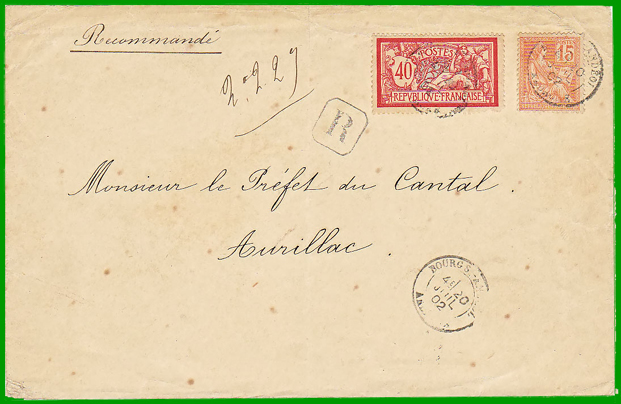 Recommandé
N° 229
R
POSTES
40
REPUBLIQUE FRANÇAISE
15
Monsieur le Préfet du Cantal.
Aurillac.
BOURG-S
20
JUIL
02